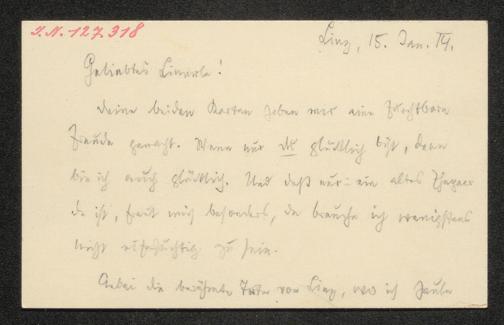 I.N. 127.318
Linz, 15. Jan. 14.
Geliebtes Linerle!
deine beiden Karten haben mir eine furchtbare
Freude gemacht. Wenn nur du glücklich bist, dann
bin ich auch glücklich. Und daß nur ein altes
da ist, freut mich besonders, da brauche ich wenigstens
nicht eifersüchtig zu sein.
Anbei die berühmte von Linz, wo ich